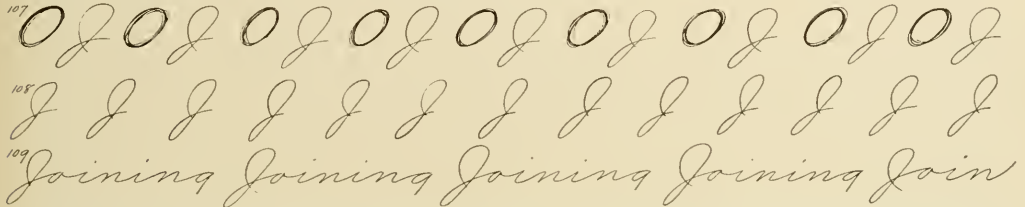 107 O J O J O J O J O J O J O J O J O J
108 J J J J J J J J J J J J J
109 Joining Joining Joining Joining Join